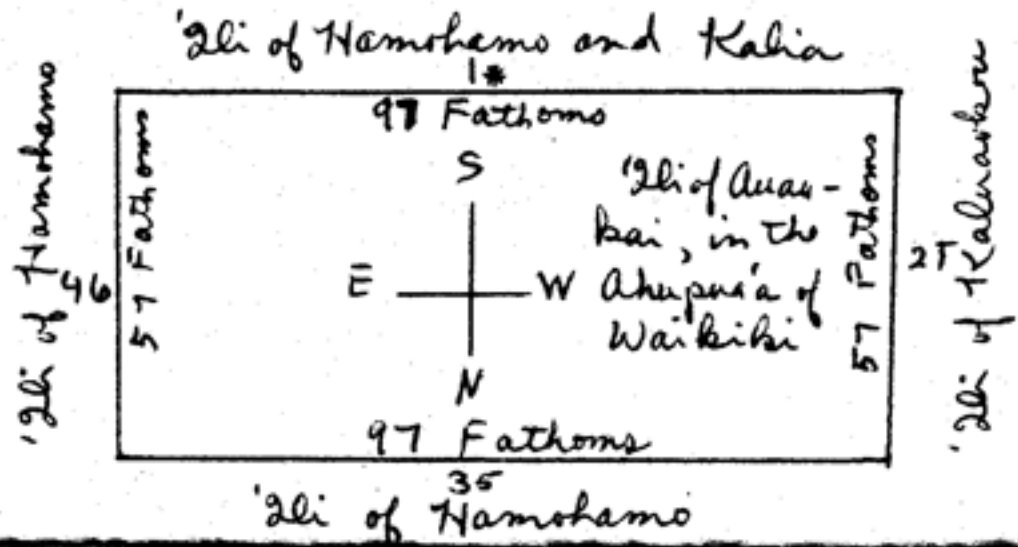 'Ili of Hamohamo and Kalia
1*
97 Fathoms
'Ili of Hamohamo
46
57 Fathoms
S
E
W
N
'Ili of Auau-
kai, in the
Ahupua'a of
Waikiki
57 Fathoms
2T
'Ili of
97 Fathoms
35
'Ili of Hamohamo